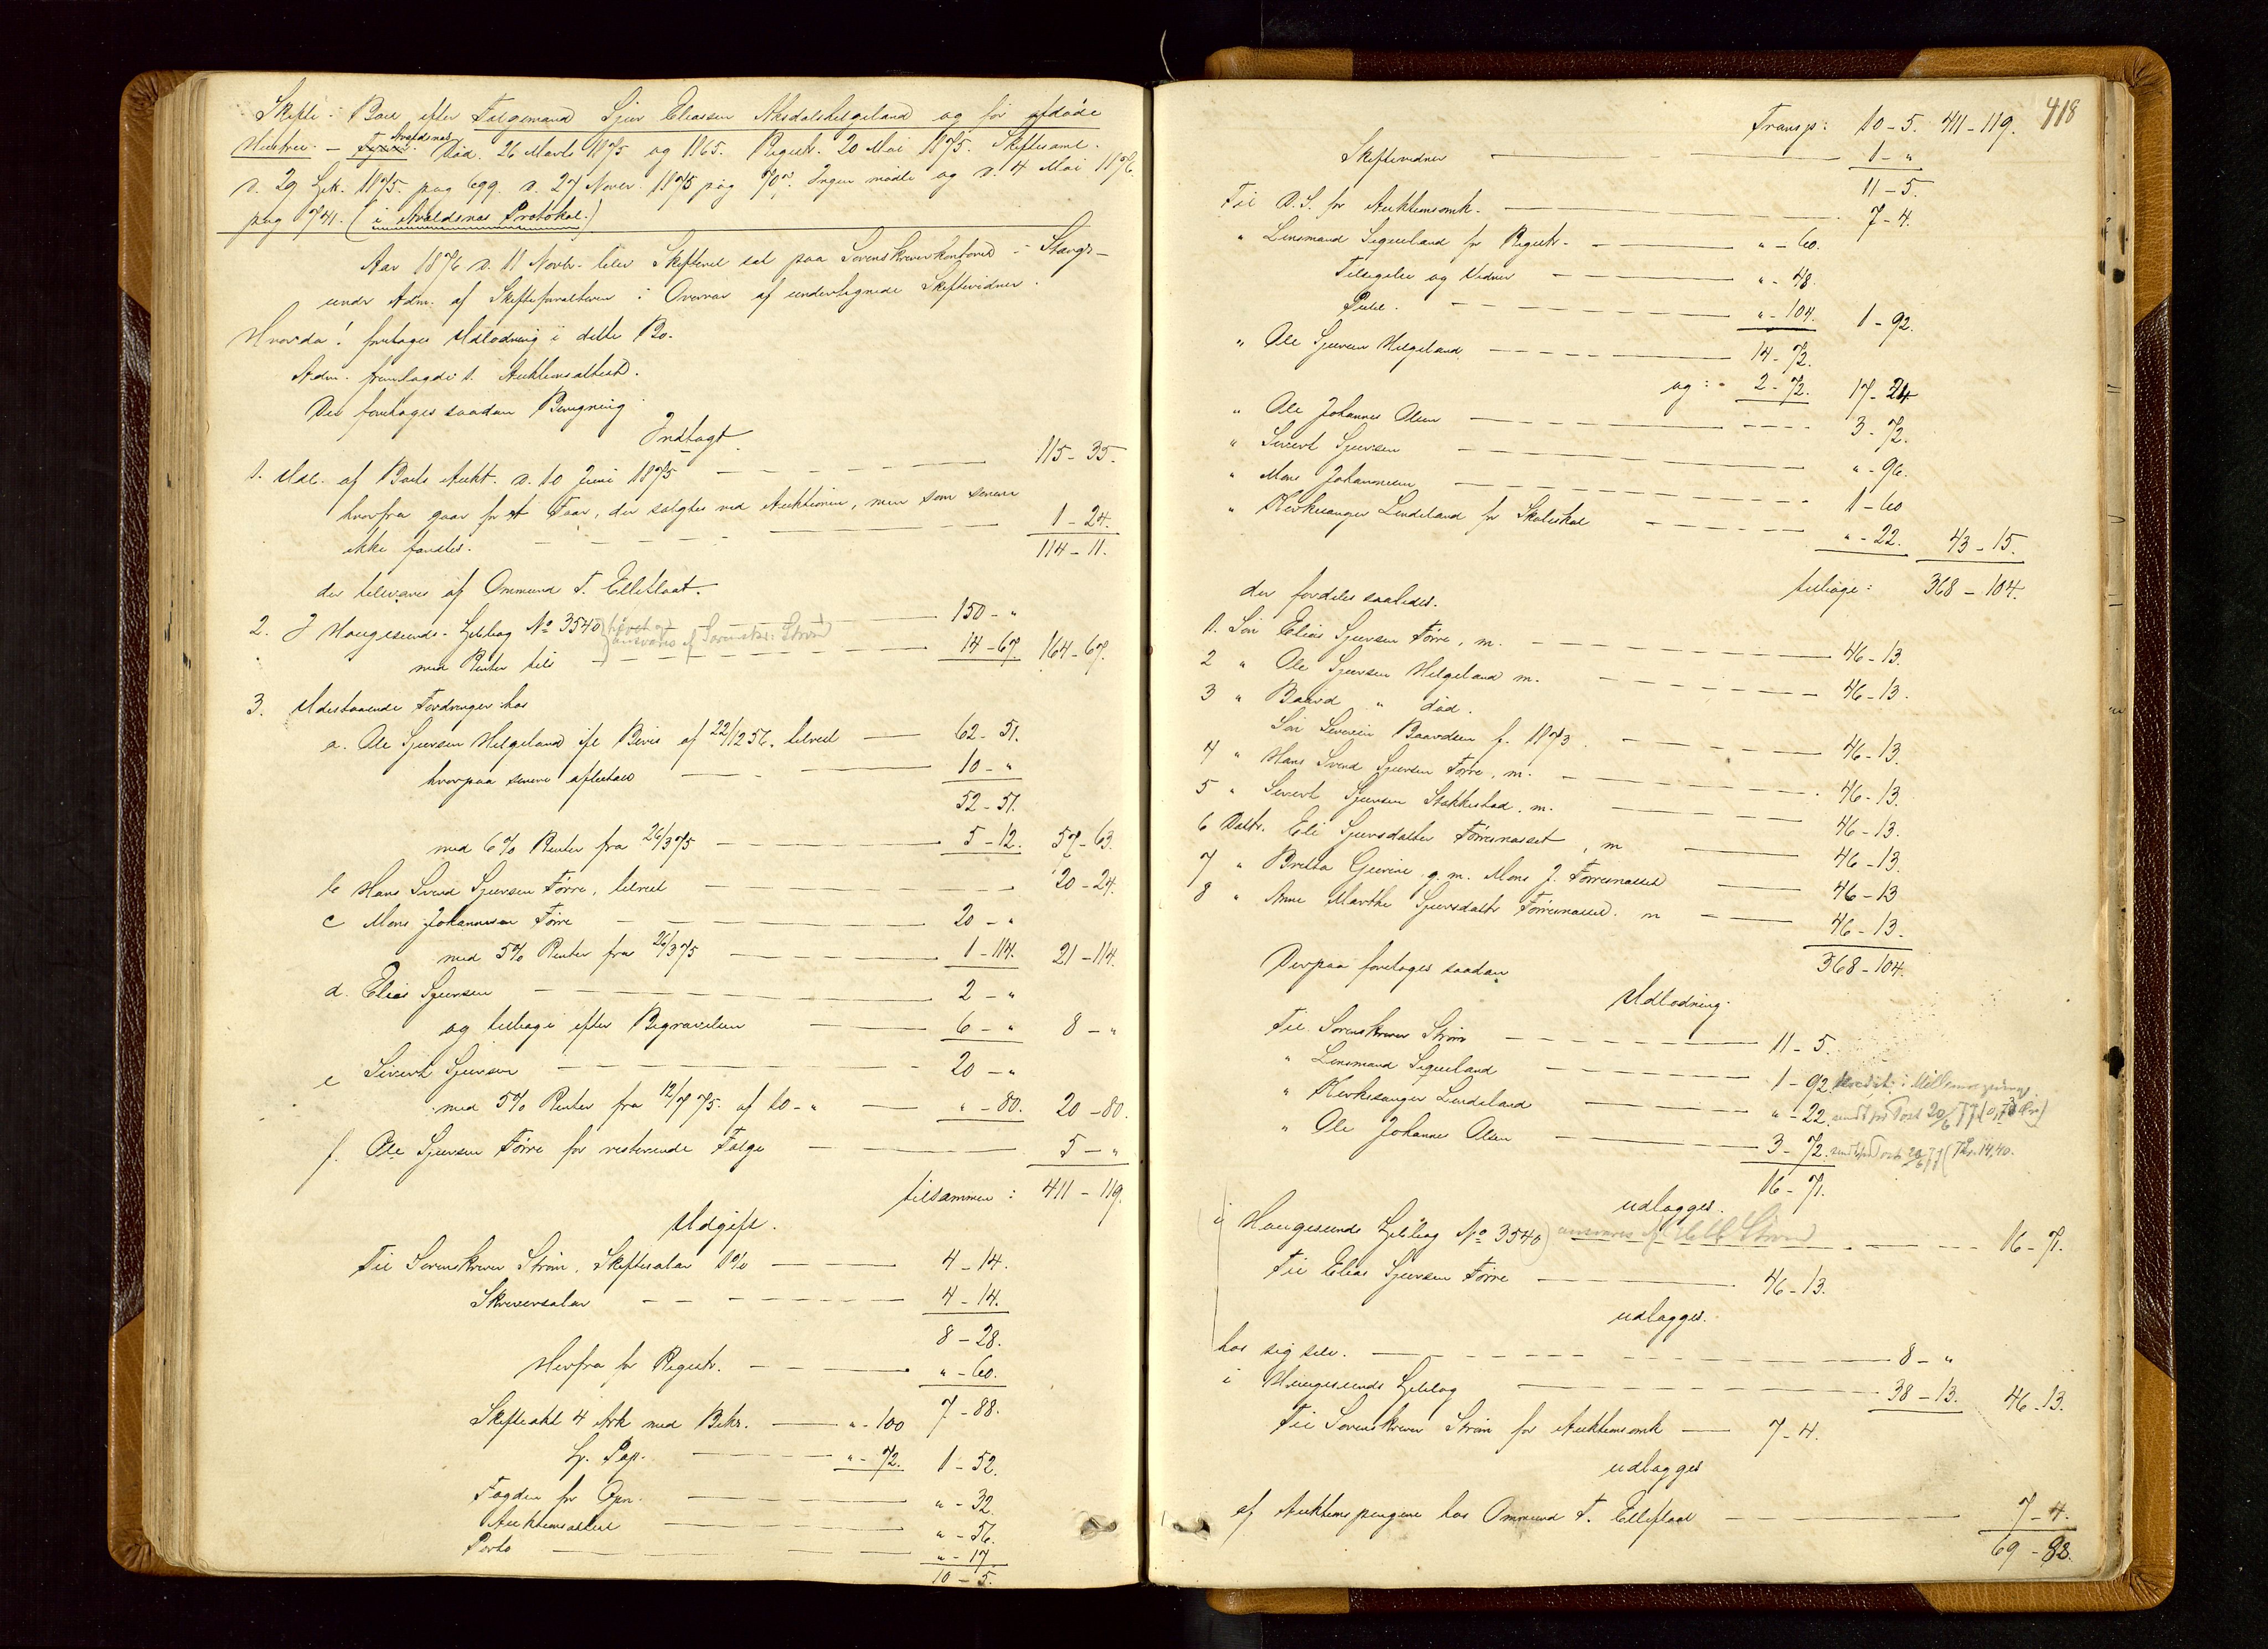 Skifte i Boet efter Folgemand Sjur Eliassen Aksdalshelgeland og før afdøde
Hustru. – Avaldsnæs. Død. 26 Marts 1875 og 1865. Registr. 20 Mai 1875. Skiftesaml.
d. 29 Oct. 1875. pag 699. d. 27 Novbr. 1875 pag 70. Ingen mødte og d. 4 Mai 1876.
pag 741. (i Avaldsnæs Protokol.)
Aar 1876 d. 11 Novbr. blev Skifteret sat paa Sorenskriverkontoret i
under Adm. af Skifteforvalteren i Overvær af undertegnede Skiftevidner.
Hvorda! foretoges Udlodning i dette Bo.
Adm. fremlagde 1. Auktionsattest.
Der foretoges saadan Beregning
Indtægt.
1. Udl. af Boets Aukt. d. 10 Juni 1875 115 – 35.
hvorfra gaar for et Faar, der solgtes ved Auktionen, men som senere
ikke fandtes. 1 – 24.
114 – 11.
der tilsvares af Ommund T. Ellefløt.
2. I Haugesunds No 3540 150 – "
ansvares af Sorenskr. Strøm
med Renter til 14 – 67. 164 – 67.
3. Udestaaende Fordringer hos
a. Ole Sjursen Helgeland ifl Bevis af 22/12 56. tilrest 62 – 51.
hvorpaa senere afbetalt 10 – "
52 – 51.
med 6% Renter fra 26/3 75 5 – 12. 57 – 63.
b Hans Svend Sjursen Førre, tilrest 20 – 24.
c Mons Johannesen Førre 20 – "
med 5% Renter fra 26/3 75 1 – 114. 21 – 114.
d. Elias Sjursen 2 – "
og tilbage efter Begravelsen 6 – " 8 – "
e Sivert Sjursen 20 – "
med 5% Renter fra 12/7 75. af 10 – " " – 80. 20 – 80.
f. Ole Sjursen Førre for resterende Folge 5 – "
tilsammen: 411 – 119.
Udgift.
Til Sorenskriver Strøm, Skiftesalær 1% 4 – 14.
Skriversalær 4 – 14.
8 – 28.
Herfra for Registr. " – 60.
7 – 88.
Skifteakt 4 Ark med Bekr. " – 100
Pap. " – 72. 1 – 52.
Fogden for Opn. " – 32
Auktionsattest " – 56.
Porto " – 17
10 – 5.
418
Transp: 10 – 5. 411 – 119.
Skiftevidner 1 – "
11 – 5.
Til D. S. for Auktionsomk. 7 – 4.
" Lensmand Sigueland for Registr. " – 60.
Tilsigelse og Vidner " – 48.
" – 104. 1 – 92.
" Ole Sjursen Helgeland 14 – 72.
og: 2 – 72. 17 – 24
" Ole Johannes Olsen 3 – 72.
" Sivert Sjursen " – 96.
" Mons Johannesen 1 – 60
" Kirkesanger Lindeland for Skoleskat " – 22. 43 – 15.
tilbage: 368 – 104.
der fordeles saaledes.
1. Søn Elias Sjursen Førre, m. 46 – 13.
2 " Ole Sjursen Helgeland m. 46 – 13.
3 " Baard " død.
Søn Severin Baardsen f. 1873. 46 – 13.
4 " Hans Svend Sjursen Førre, m. 46 – 13.
5 " Sivert Sjursen Stakkestad, m. 46 – 13.
6 Dattr. Eli Sjursdatter Førresnæsset, m 46 – 13.
7 " Bretha Gurine g. m. Mons J. Førresnæsset 46 – 13
8 " Anne Marthe Sjursdattr Førresnæsset. m 46 – 13.
368 – 104.
Derpaa foretoges saadan
Udlodning.
Til Sorenskriver Strøm 11 – 5.
" Lensmand Sigueland 1 – 92.
" Kirkesanger Lindeland " – 22. sendt pr Post 20/6 77
" Ole Johannes Olsen 3 – 72. sendt pr Post 20/6 77 14,40.
16 – 71.
udlægges.
i Haugesunds No 3540) ansvares af Strøm 16 – 71.
Til Elias Sjursen Førre 46 – 13.
udlægges.
hos sig selv. 8 – "
i Haugesunds 38 – 13. 46 – 13.
Til Sorenskriver Strøm for Auktionsomk 7 – 4.
udlægges
af Auktionspengene hos Ommund T. Ellefløt 7 – 4.
69 – 88.